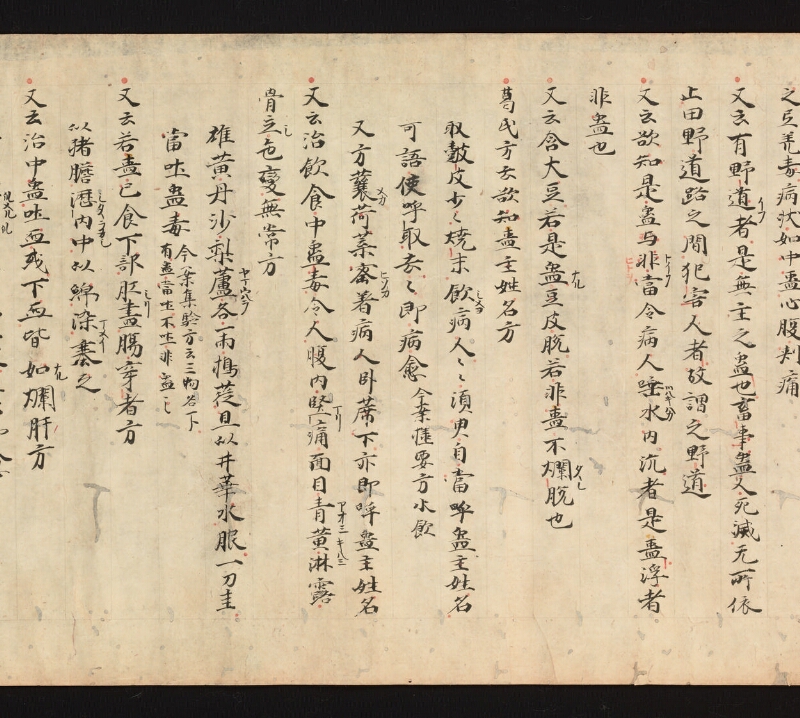 之与羌毒病状如中蛊心腹刺痛
又云有野道者是無主之蛊也畜事蛊人死滅无所依
止田野道路之間犯害人者故謂之野道
又云欲知是蛊与非當令病人唾水内沉者是蛊浮者
非蛊也
又云含大豆若是蛊豆皮脱若非蛊不爛脱也
葛氏方云欲知蛊主姓名方
取皷皮少〻焼末飲病人〻〻須臾自當呼蛊主姓名
可語使呼取去〻即病愈 今案集要方水飲
又方蘘荷葉密著病人卧蓆下亦即呼蛊主姓名
又云治飲食中蛊毒令人腹内堅痛面目青黄淋露
骨立色變無常方
雄黄丹沙梨蘆各一兩搗蓰旦以井華水服一刀圭
當吐蛊毒 今案集驗方云三物各一下
有蛊當吐不吐非蛊〻
又云若蛊已食下部肛盡腸穿者方
以猪膽瀝内中以綿染塞之
又云治中蛊吐血或下血皆如爛肝方